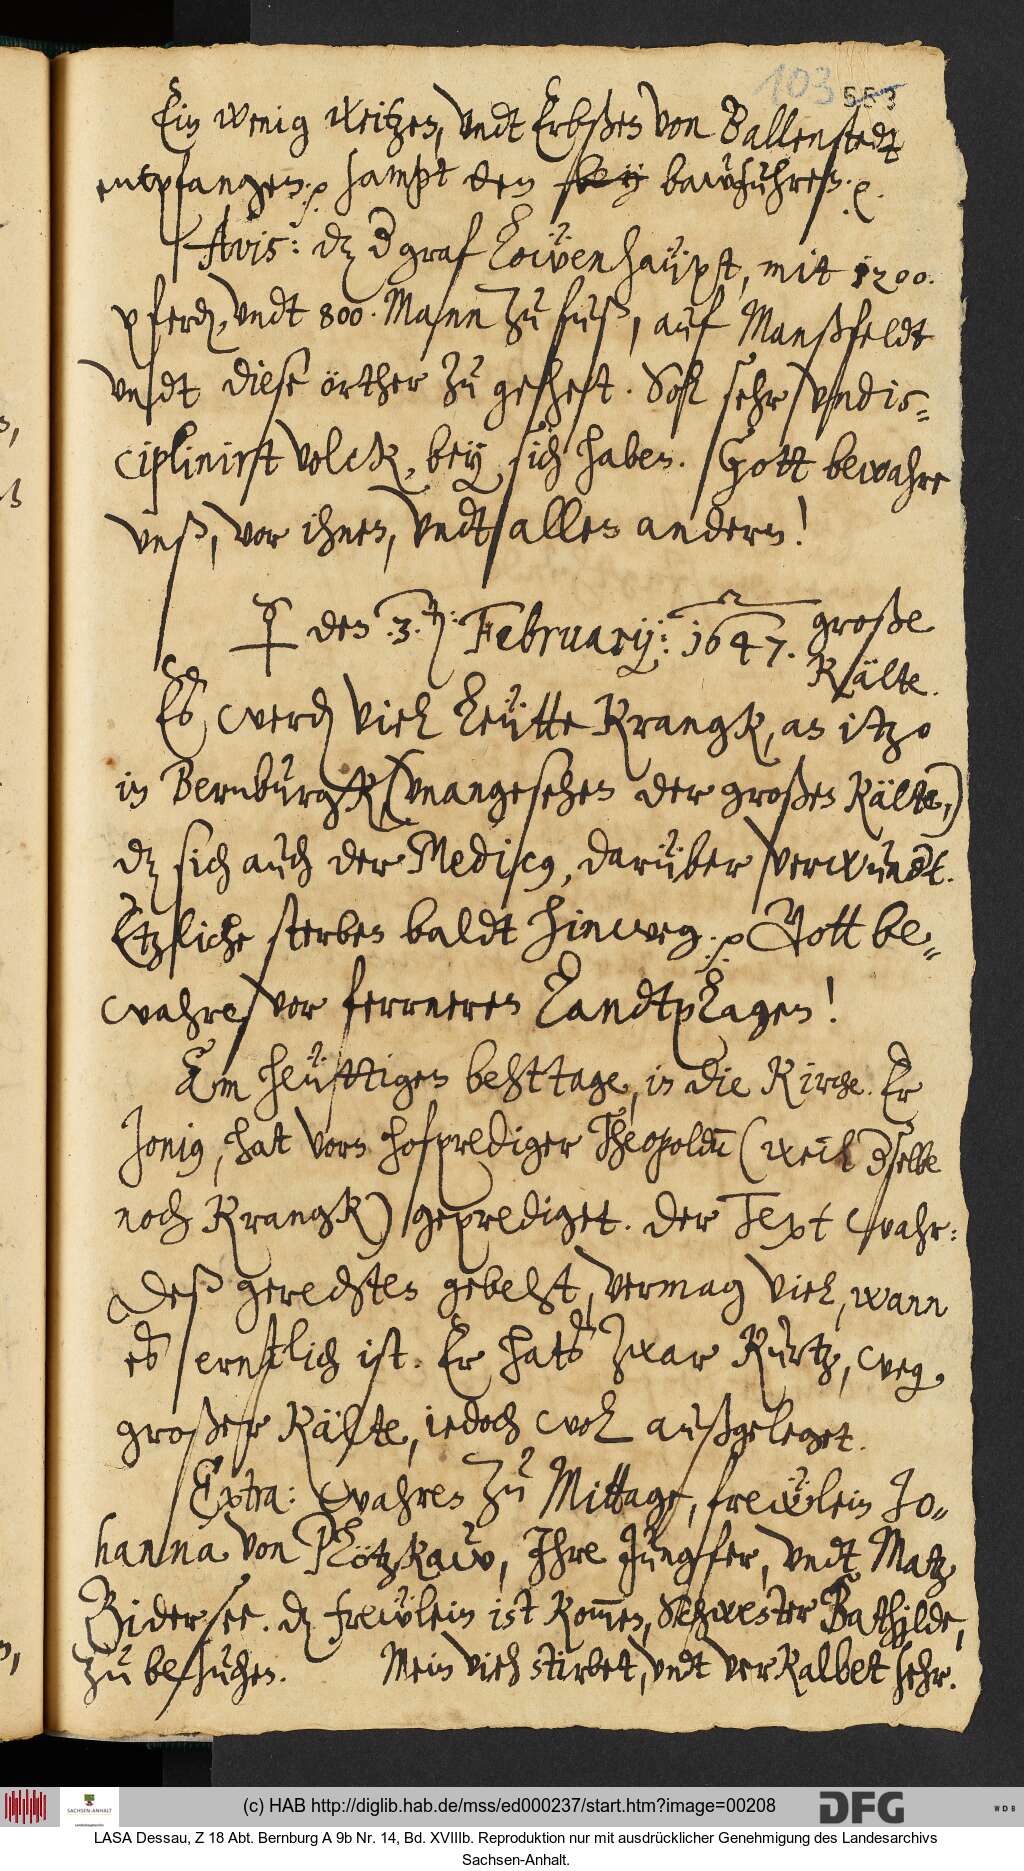 103 553
Ein wenig Weitzen, vndt Erbßen von Ballenstedt
entpfangen. ₰ sampt den bawfuhren. ₰.
Avis: dz d graf Lo͡wenhaüpt, mit 1200.
pferd, vndt 800. Mann zu fuß, auf Manßfeldt
vndt diese örther zu gehet. Sol sehr vndis-
ciplinirt volck, bey sich haben. Gott bewahre
vnß, vor ihnen, vndt allen andern!
☿ den .3. Februarij: 1647. große
Kälte.
Es werd viel leütte Krangk, an itzo
in Bernburgk, (vnangesehen der großen Kälte,)
dz sich auch der Medicus, darüber verwundt.
Etzliche sterben baldt hinweg. ₰ Gott be-
wahre vor ferrneren Landtplagen!
Am heüttigen behttage, in die Kirche. Er
Jonius, hat vorn hofprediger Theopoldū (weil dselbe
noch Krangk) geprediget. Der Text wahr:
Deß gerechten gebeht, vermag viel, wann
es ernstlich ist. Er hats zwar Kurtz, weg
großer Kälte, iedoch wol außgeleget.
Extra: wahren zu Mittage, frewlein Jo-
hanna von Plötzkaw, Ihre Jungfer, vndt Matz
Bidersee. dz frewlein ist kom̄en, Schwester Bathilde,
zu besuchen. Mein vieh stirbet, vndt verkalbet sehr.
(c) HAB http://diglib.hab.de/mss/ed000237/start.htm?image=00208
SACHSEN-ANHALT
DFG
WDB
LASA Dessau, Z 18 Abt. Bernburg A 9b Nr. 14, Bd. XVIIIb. Reproduktion nur mit ausdrücklicher Genehmigung des Landesarchivs
Sachsen-Anhalt.